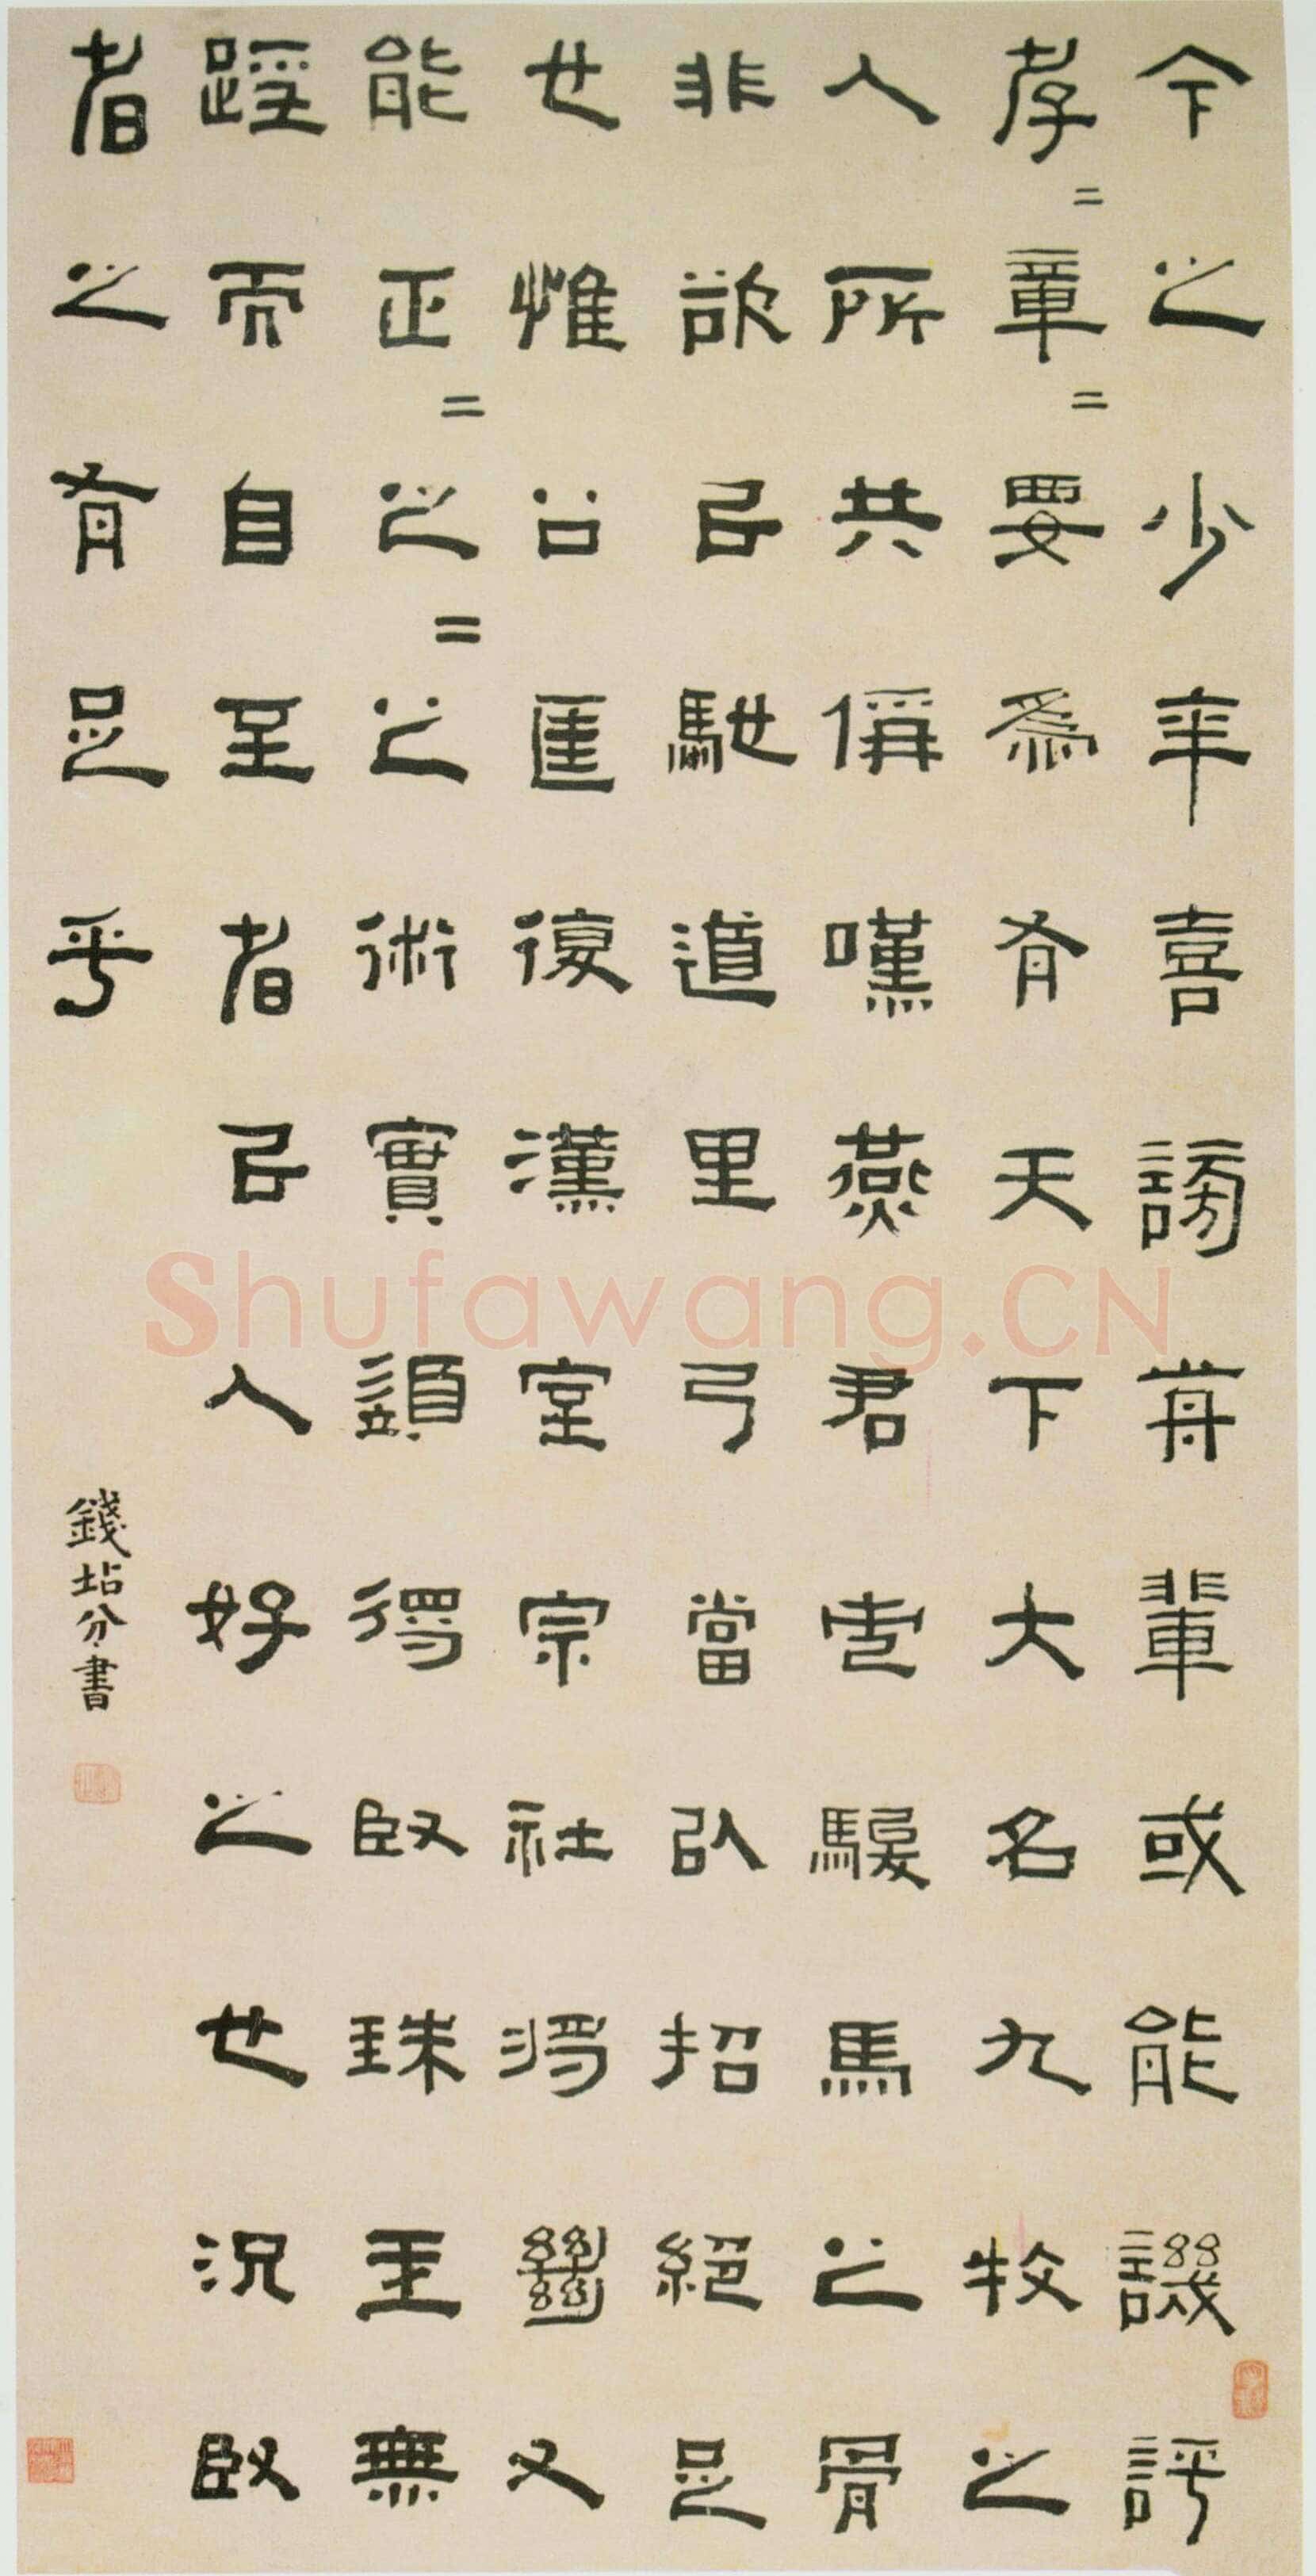 今之少年喜謗前輩或能譏評
孝=章=要為有天下大名九牧之
人所共偁嘆燕君市駿馬之骨
非欲以馳道里乃當以招絕足
也惟公匡復漢室宗社將絕又
能正=之=之術實須得臤珠玉無
踁而自至者以人好之也況臤
者之有足乎
錢坫分書
Shufawang.CN